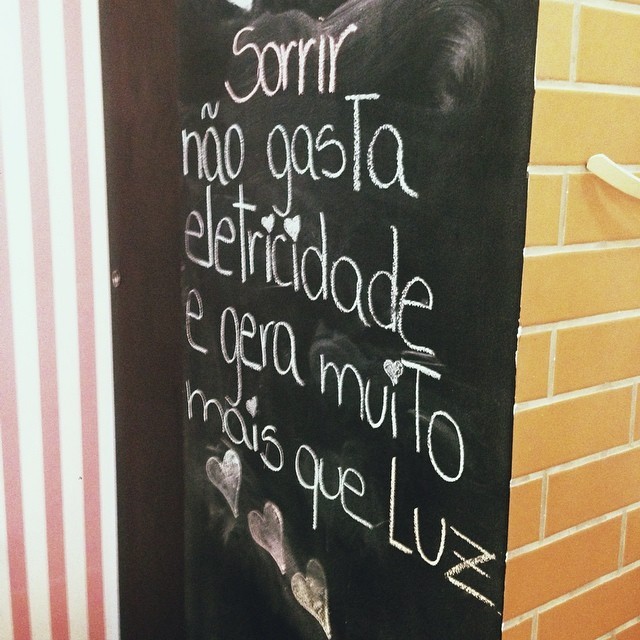 Sorrir
não gasTa
eletricidade
e gera muiTo
mais que LUZ